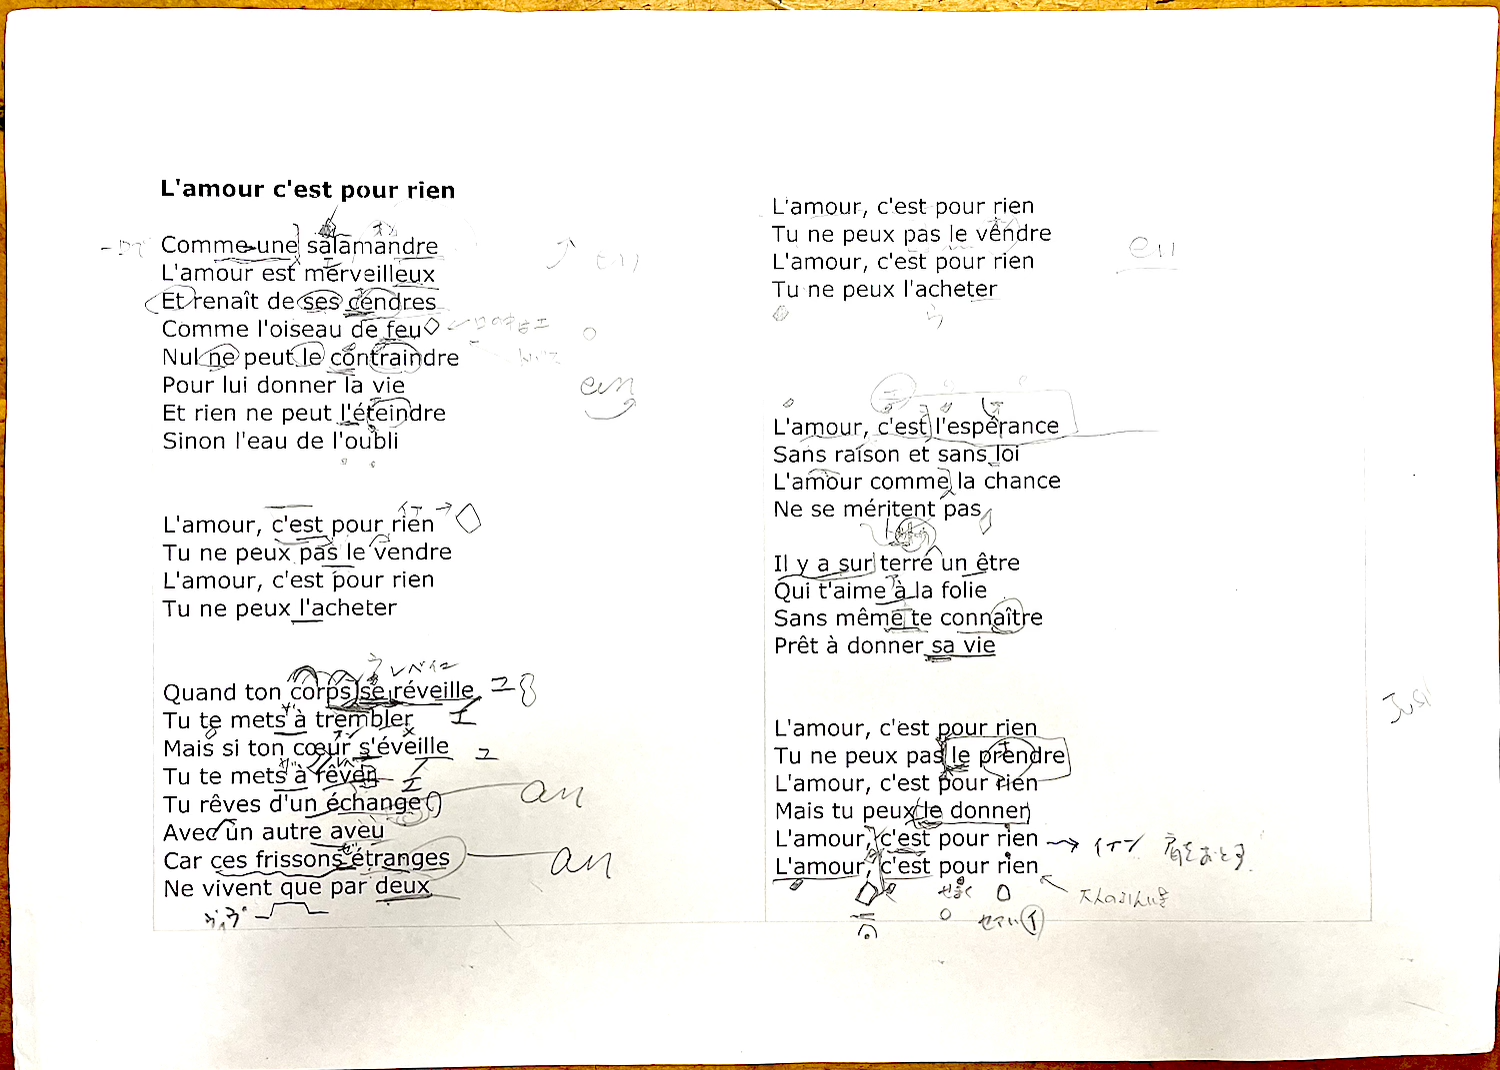 L'amour c'est pour rien
Comme une salamandre
L'amour est merveilleux
Et renaît de ses cendres
Comme l'oiseau de feu
Nul ne peut le contraindre
Pour lui donner la vie
Et rien ne peut l'éteindre
Sinon l'eau de l'oubli
ein
L'amour, c'est pour rien
Tu ne peux pas le vendre
L'amour, c'est pour rien
Tu ne peux l'acheter
レベイエ
Quand ton corps se réveille
Tu te mets à trembler
エ
Mais si ton cœur s'éveille
Tu te mets à rêver
エ
Tu rêves d'un échange
an
Avec un autre aveu
Car ces frissons étranges
an
Ne vivent que par deux
L'amour, c'est pour rien
Tu ne peux pas le vendre
eu
L'amour, c'est pour rien
Tu ne peux l'acheter
L'amour, c'est l'espérance
Sans raison et sans loi
L'amour comme la chance
Ne se méritent pas
Il y a sur terre un être
Qui t'aime à la folie
Sans même te connaître
Prêt à donner sa vie
L'amour, c'est pour rien
Tu ne peux pas le prendre
L'amour, c'est pour rien
Mais tu peux le donner
L'amour, c'est pour rien
L'amour, c'est pour rien